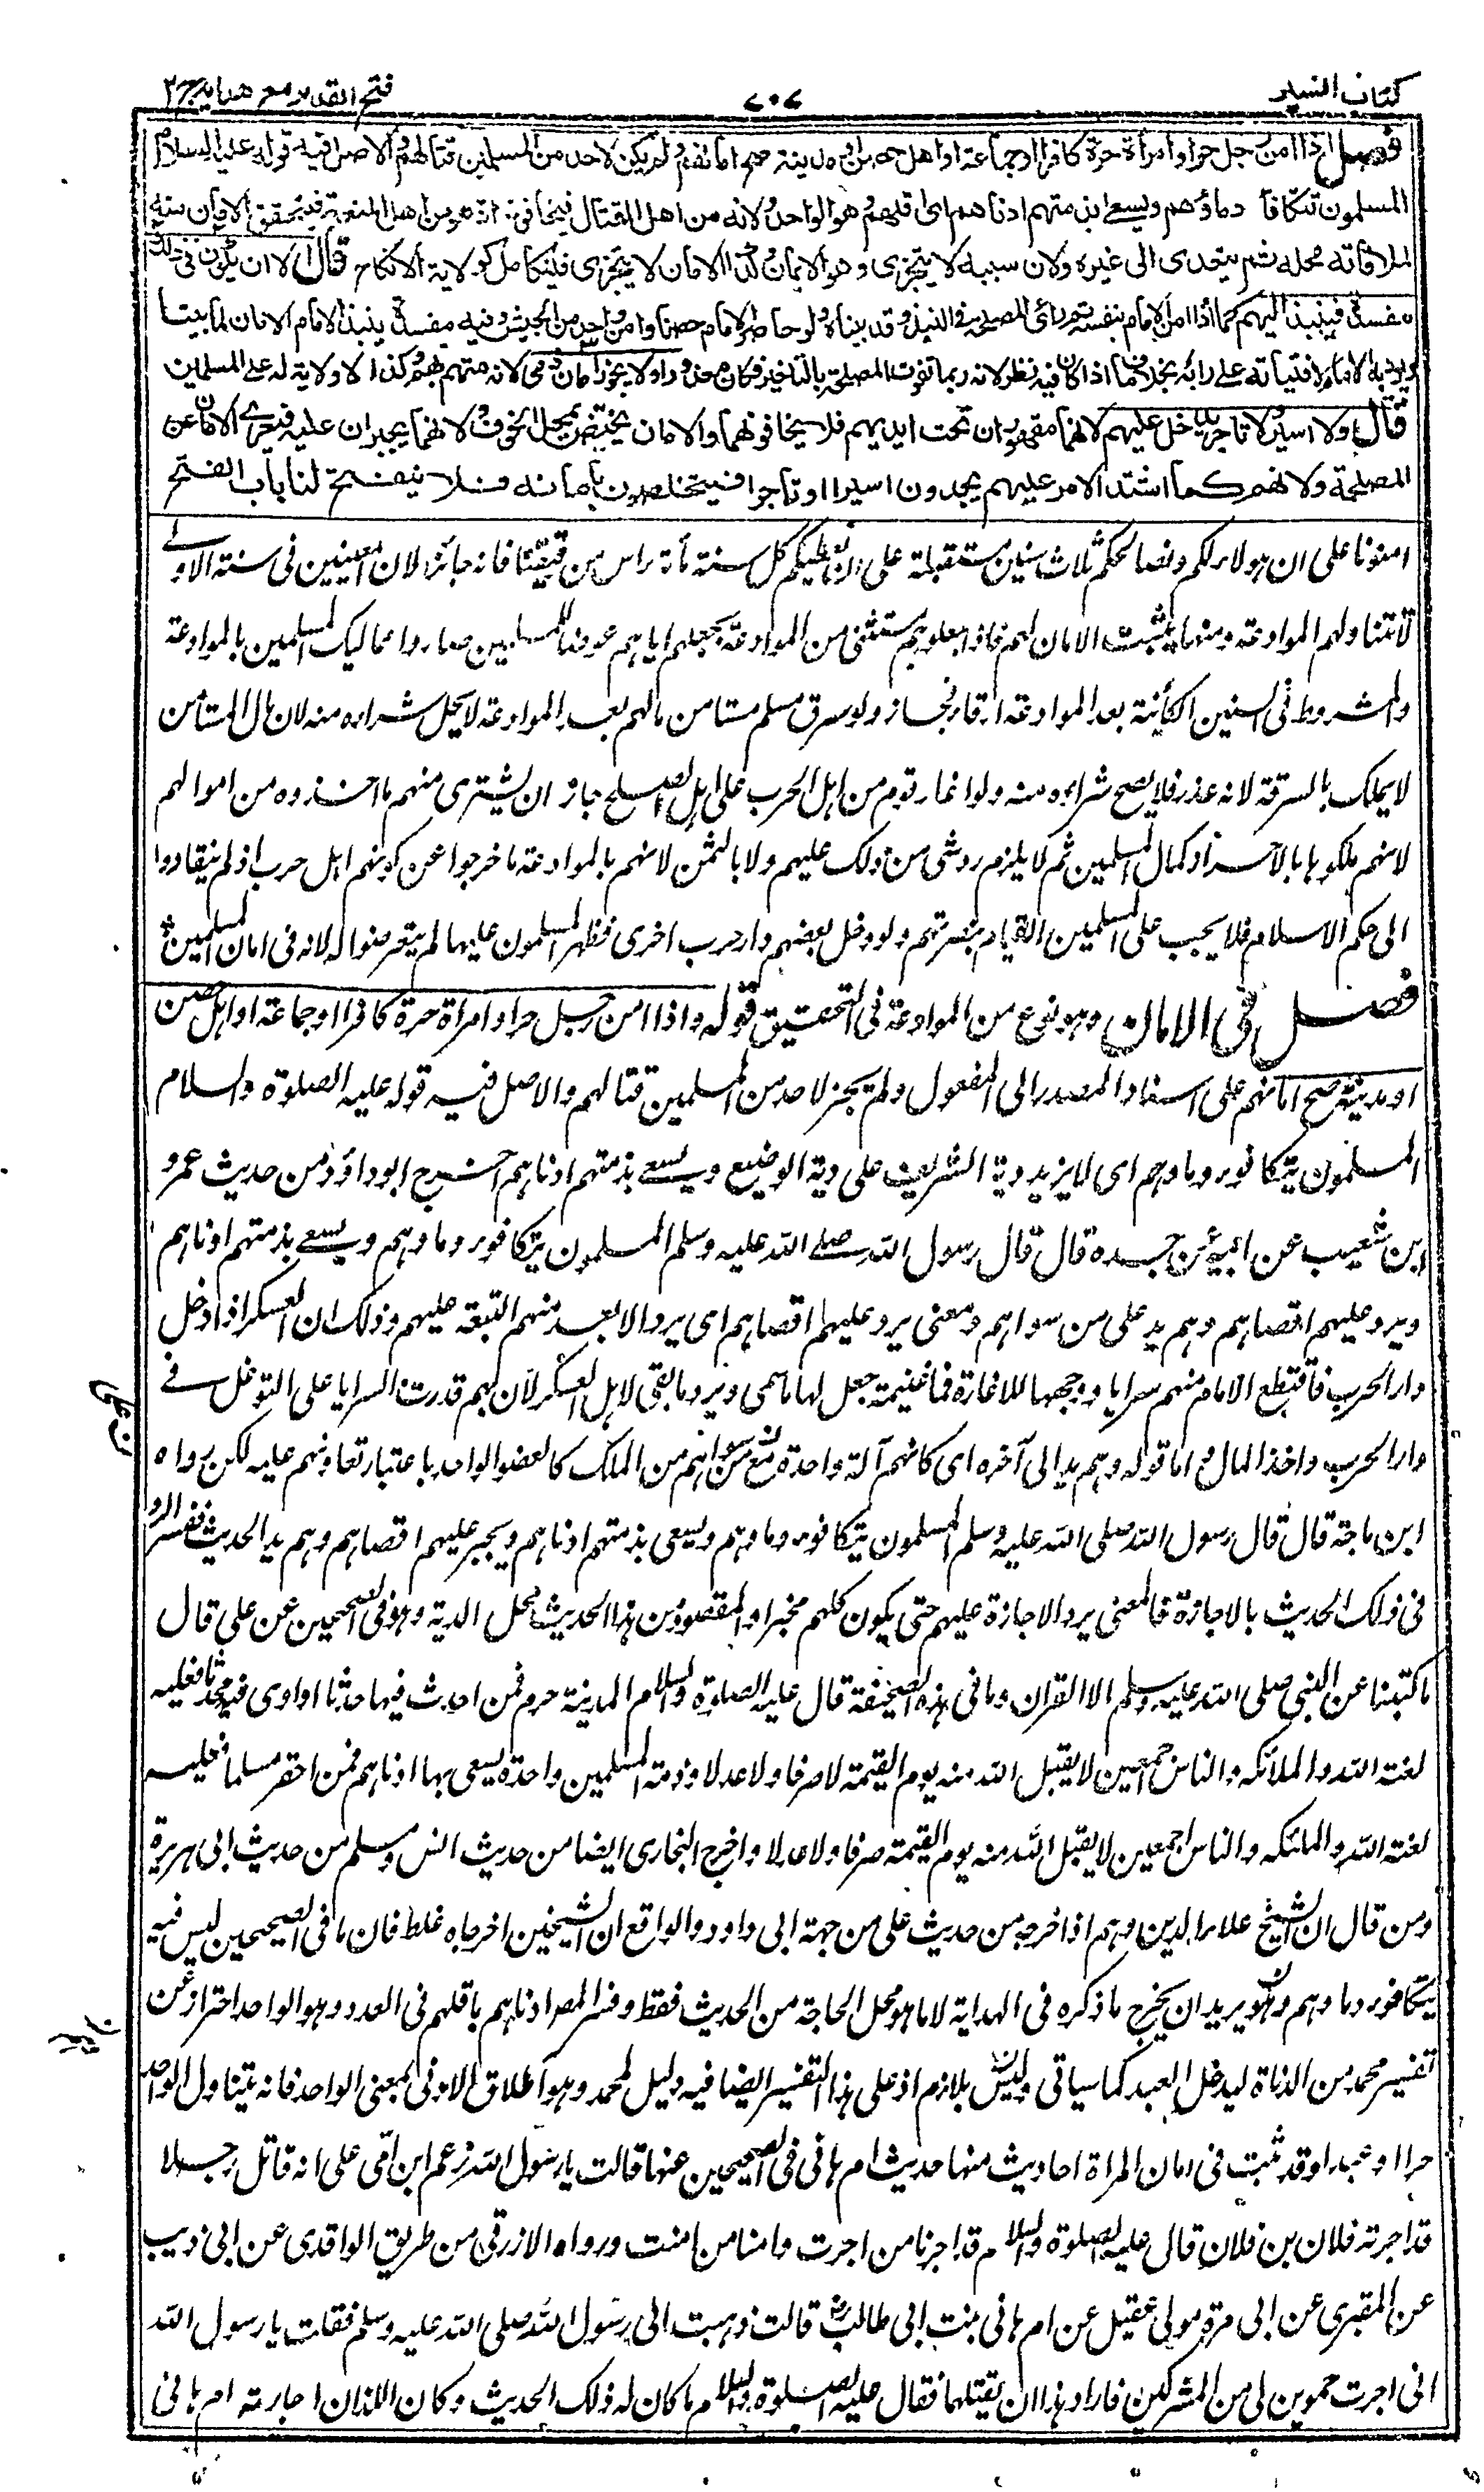 كتاب السير
٧٠٧
فتح القدير مع هدايه ج ٢
فصل اذا امن رجل حر او امرأة حرة كافرا او جماعة او اهل حصن او مدينة صح امانهم ولم يكن لاحد من المسلمين قتالهم والاصل فيه قوله عليه السلام
المسلمون تتكافأ دماؤهم ويسعى بذمتهم ادناهم اى اقلهم وهو الواحد ولانه من اهل القتال فيخافونه اذ هو من اهل المنعة فيتحقق الامان منه
لملاقاته محله ثم يتعدى الى غيره ولان سببه لا يتجزى وهو الايمان وكذا الامان لا يتجزى فيتكامل كولاية الانكاح قال الا ان يكون فى ذلك
مفسدة فينبذ اليهم كما اذا امن الامام بنفسه ثم رأى المصلحة فى النبذ وقد بيناه ولو حاصر الامام حصنا وامن واحد من الجيش وفيه مفسدة ينبذ الامام الامان لما بينا
ويؤدبه الامام لافتياته على رأيه بخلاف ما اذا كان فيه نظر لانه ربما تفوت المصلحة بالتاخير فكان معذورا ولا يجوز امان ذمى لانه متهم بهم وكذا لا ولاية له على المسلمين
قال ولا اسير ولا تاجر يدخل عليهم لانهما مقهوران تحت ايديهم فلا يخافونهما والامان يختص بمحل الخوف ولانهما يجبران عليه فيعرى الامان عن
المصلحة ولانهم كما اشتد الامر عليهم يجدون اسيرا او تاجرا فيتخلصون بامانه فلا ينفتح لنا باب الفتح
امنونا على ان هولاء لكم ونصالحكم ثلاث سنين مستقبلة على ان نعطيكم كل سنة مأة راس من رقيقنا فانه جائز لان المعينين فى سنة الاولى
لا تتناولهم الموادعة ومنها يثبت الامان لهم فاذا جعلوهم مستثنى من الموادعة بجعلهم اياهم عوضا للمسلمين صاروا مماليك المسلمين بالموادعة
والمشروط فى السنين الكائنة بعد الموادعة ارقاء فجاز ولو سرق مسلم مستامن مالهم بعد الموادعة لا يحل شراءه منه لان مال المستامن
لا يملك بالسرقة لانه غدر فلا يصح شراءه منه ولو اغار قوم من اهل الحرب على اهل الصلح جاز ان يشترى منهم ما اخذوه من اموالهم
لانهم ملكوها بالاحراز كمال المسلمين ثم لا يلزم رد شى من ذلك عليهم ولا بالثمن لانهم بالموادعة ما خرجوا عن كونهم اهل حرب اذ لم ينقادوا
الى حكم الاسلام فلا يجب على المسلمين القيام بنصرتهم ولو دخل بعضهم دار حرب اخرى فظهر المسلمون عليها لم يتعرضوا له لانه فى امان المسلمين
فصل فى الامان وهو نوع من الموادعة فى التحقيق قوله واذا امن رجل حر او امرأة حرة كافرا او جماعة او اهل حصن
او مدينة صح امانهم على اسناد المصدر الى المفعول ولم يجز لاحد من المسلمين قتالهم والاصل فيه قوله عليه الصلوة والسلام
المسلمون يتكافوء دماؤهم اى لا يزيد دية الشريف على دية الوضيع ويسعى بذمتهم ادناهم اخرج ابو داؤد من حديث عمرو
ابن شعيب عن ابيه عن جده قال قال رسول الله صلى الله عليه وسلم المسلمون يتكافوء دماؤهم ويسعى بذمتهم ادناهم
ويرد عليهم اقصاهم وهم يد على من سواهم ومعنى يرد عليهم اقصاهم اى يرد الابعد منهم التبعة عليهم وذلك ان العسكر اذا دخل
دار الحرب فاقتطع الامام منهم سرايا ووجهها للاغارة فما غنيمة جعل لها ما سمى ويرد ما بقى لاهل العسكر لان بهم قدرت السرايا على التوغل فى
دار الحرب واخذ المال واما قوله وهم يد الى آخره اى كانهم آلة واحدة مع من سواهم من الملك كالعضو الواحد باعتبار تعاونهم عليه لكن رواه
ابن ماجة قال قال رسول الله صلى الله عليه وسلم المسلمون يتكافوء دماؤهم ويسعى بذمتهم ادناهم ويجير عليهم اقصاهم وهم يد الحديث ففسر الرد
فى ذلك الحديث بالاجازة فالمعنى يرد الاجازة عليهم حتى يكون كلهم مجيرا والمقصود من هذا الحديث محل الدية وهو فى الصحيحين عن على قال
ما كتبنا عن النبى صلى الله عليه وسلم الا القران وما فى هذه الصحيفة قال عليه الصلوة والسلام المدينة حرم فمن احدث فيها حدثا او اوى فيها محدثا فعليه
لعنة الله والملائكه والناس اجمعين لا يقبل الله منه يوم القيمة لا صرفا ولا عدلا وذمة المسلمين واحدة يسعى بها ادناهم فمن اخفر مسلما فعليه
لعنة الله والملئكه والناس اجمعين لا يقبل الله منه يوم القيمة صرفا ولا عدلا واخرج البخارى ايضا من حديث انس ومسلم من حديث ابى هريرة
ومن قال ان الشيخ علاء الدين وهم اذا خرجه من حديث على من جهة ابى داود والواقع ان الشيخين اخرجاه غلط فان ما فى الصحيحين ليس فيه
يتكافوء دماؤهم وهو يريد ان يخرج ما ذكره فى الهداية لا ما هو محل الحاجة من الحديث فقط وفسر المص ادناهم باقلهم فى العدد وهو الواحد احترازا عن
تفسير محمد من الدناة ليدخل العبد كما سياتى وليس بلازم اذ على هذا التفسير ايضا فيه دليل لمحمد وهو اطلاق الادنى بمعنى الواحد فانه يتناول الواحد
حرا او عبدا وقد ثبت فى امان المراة احاديث منها حديث ام هانى فى الصحيحين عنها قالت يا رسول الله زعم ابن امى على انه قاتل رجلا
قد اجرته فلان بن فلان قال عليه الصلوة والسلام قد اجرنا من اجرت وامنا من امنت ورواه الازرقى من طريق الواقدى عن ابى ذيب
عن المقبرى عن ابى مرة مولى عقيل عن ام هانى بنت ابى طالب قالت ذهبت الى رسول الله صلى الله عليه وسلم فقلت يا رسول الله
انى اجرت حموين لى من المشركين فاراد هذا ان يقتلهما فقال عليه الصلوة والسلام ما كان له ذلك الحديث وكان اللذان اجارته ام هانى